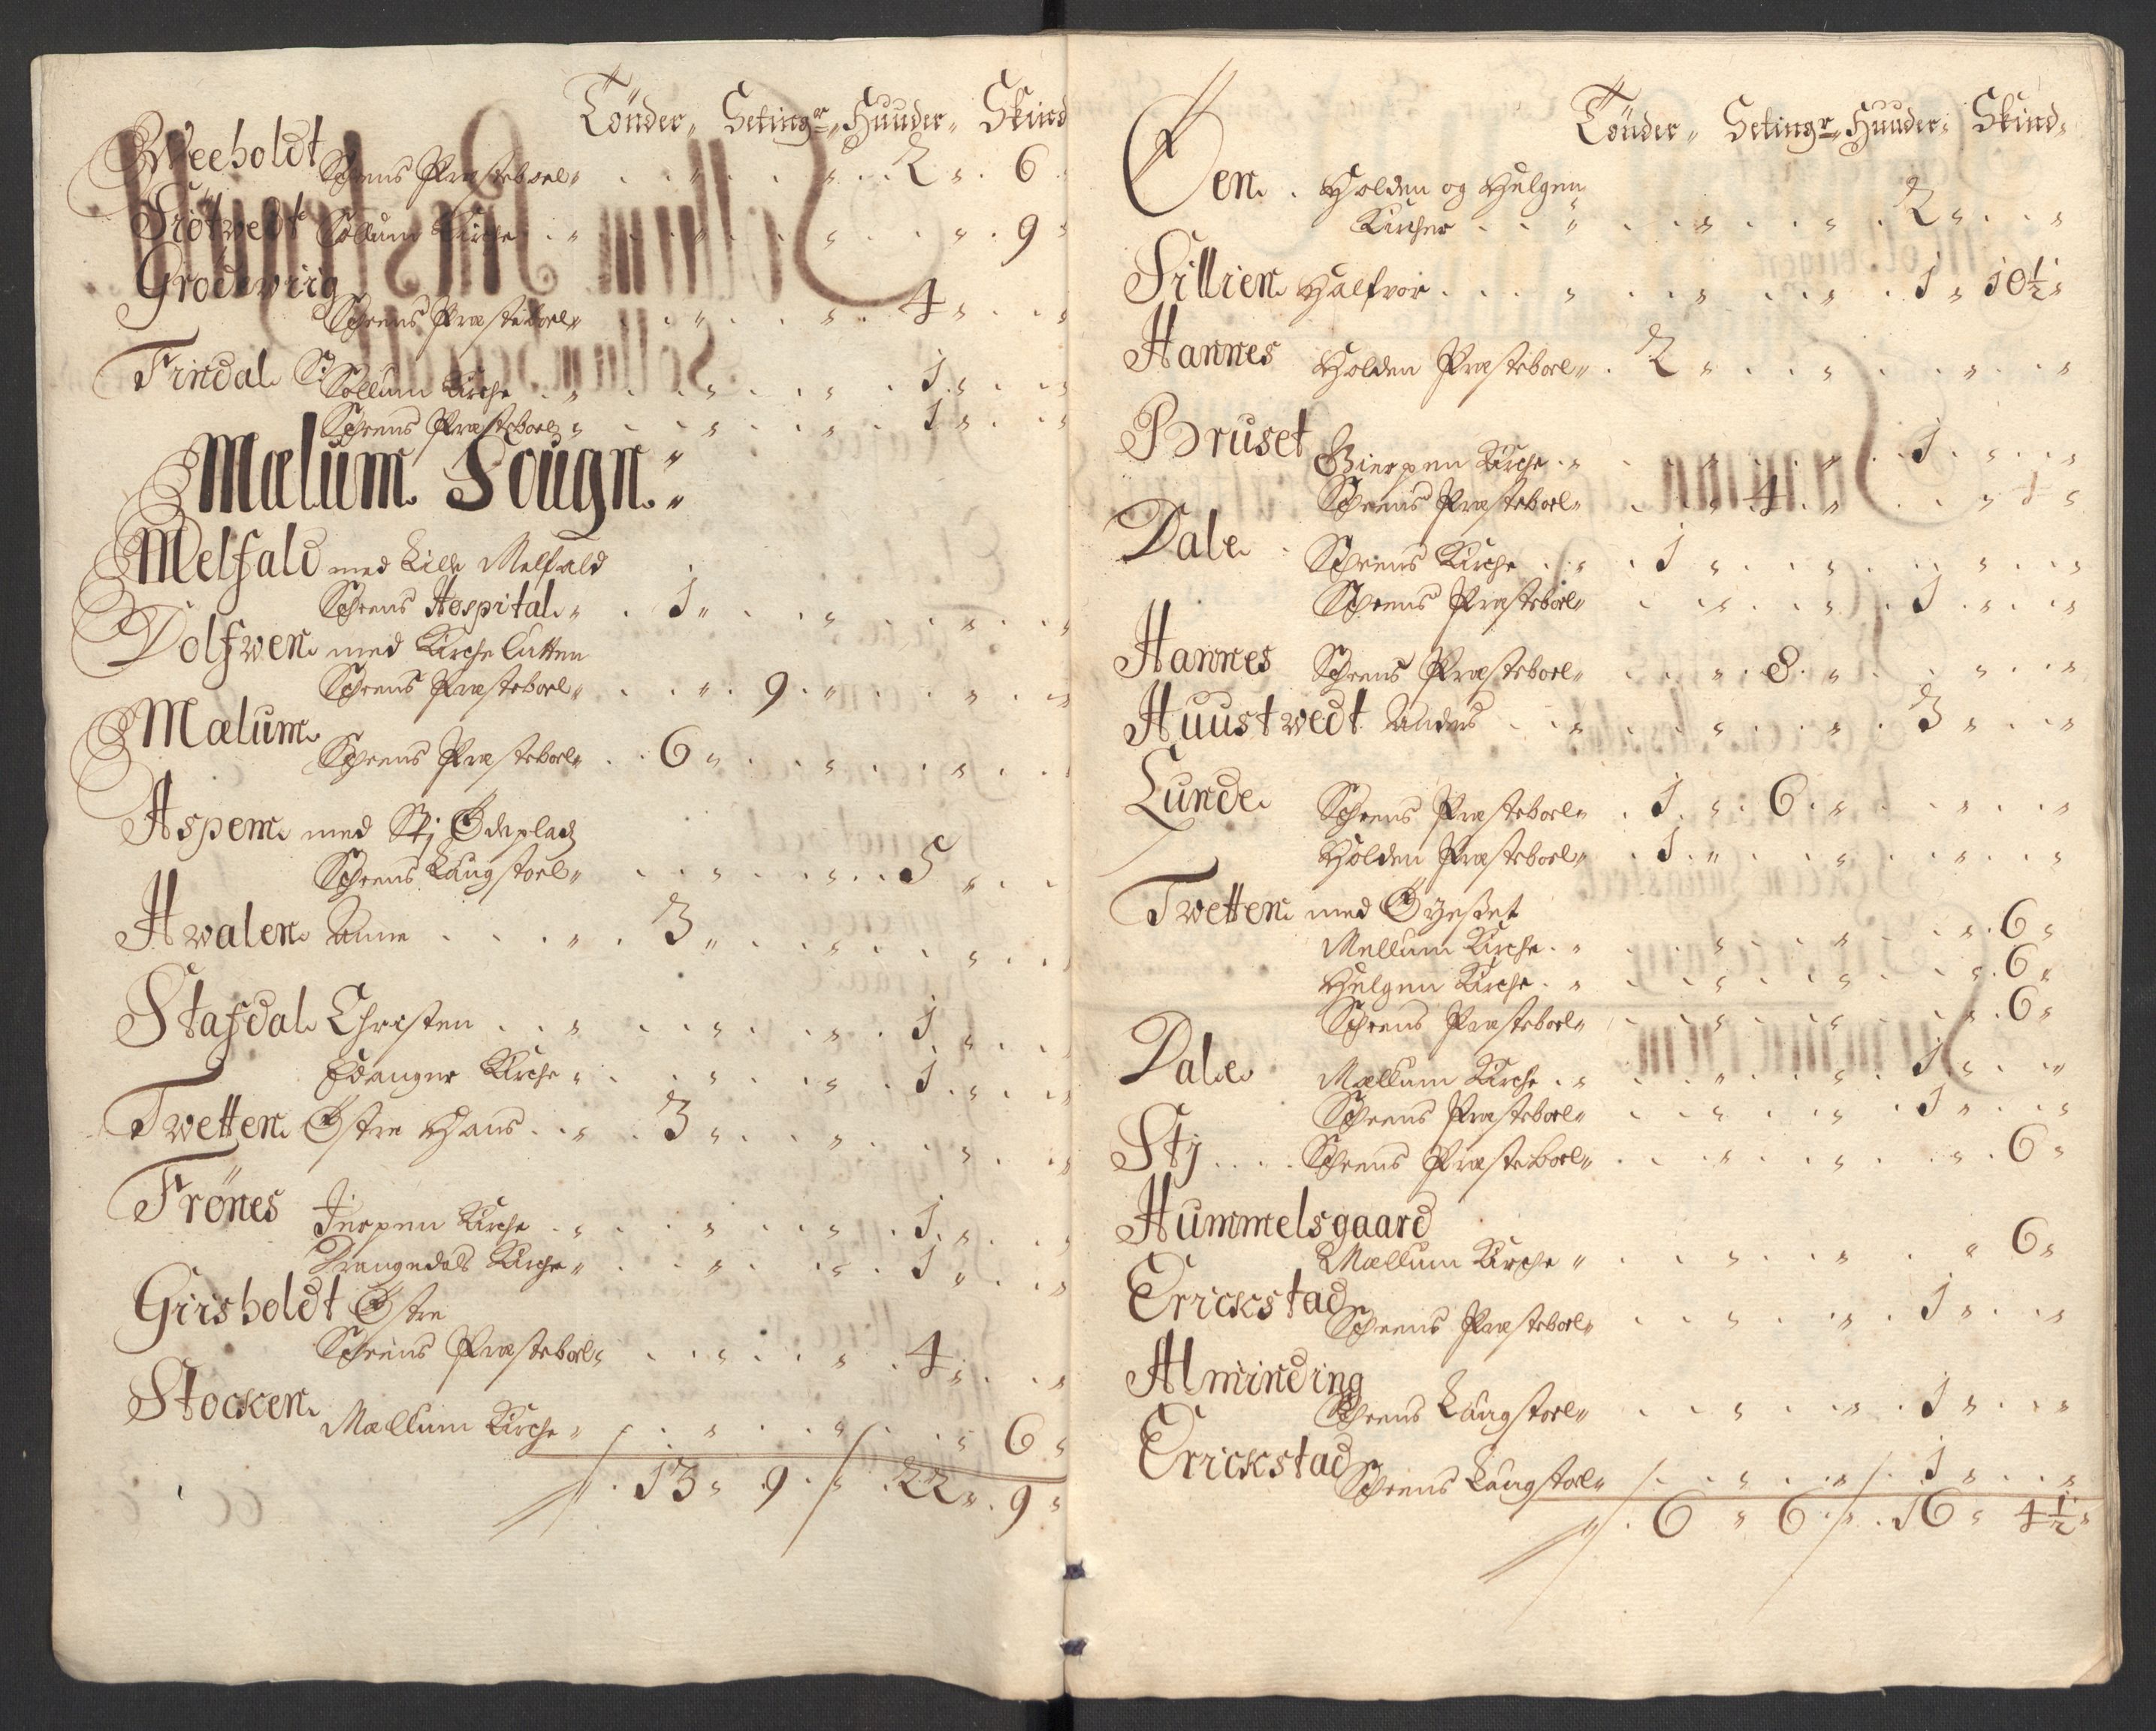 Tönder„ Setingr„ Huuder„ Skind
Weeholdt
Scheens Præsteboel„ . . „ . . „ . . 2 „ . 6 .
Frötvedt Sollum Kirche . „ . . „ . . „ . . „ . 9 „
Grödewiig
Scheens Præsteboel„ . . „ . . „ . 4 „ . . „
Findal
Sollum Kirche . „ . . „ . . „ . 1 „ . . „
Scheens Præsteboel „ . . „ . . „ . 1 „ . . „
Mælum Sougn:
Melfald med Lille Melfald
Scheens Hospital „ . 1 „ . . „ . . „ . . „
Dolfwen med Kirchelætten
Scheens Præsteboel„ . . „ . 9 . „ . . „ . . „
Mælum
Scheens Præsteboel„ . . 6 „ . . „ . . „ . .
Aspem med Stj Ødeplads
Scheens Laugstoel„ . . „ . . „ . . 5 „ . .
Hwalen Anne . . . „ . 3 „ . . „ . . „ . .
Stafdal Christen . . „ . . „ . . „ . 1 „ . .
Edanger Kirche „ . . „ . . „ . 1 . „ . . „
Twetten Østre Hans . . „ . 3 „ . . „ . . „ . . „
Frönes Jerpen Kirche . „ . . „ . . „ . 1 „ . . „
Drangedals Kirche„ . . „ . . „ . 1 „ . . „
Giisholdt Østre
Scheens Præsteboel„ . . „ . . „ . 4 „ . . „
Stocken
Mællum Kirche „ . „ . . „ . . „ 6 „
„ . 13 „ 9 . „ . 22 „ . 9 „
Tönder„ Setingr„ Huuder„ Skind„
Øen . Holden og Helgen
Kircher . . „ . . „ . . „ . 2 „ . . „
Sillien Halfvor . . . „ . . „ . . „ . 1 „ 10½ „
Hannes Holden Præsteboel„ . 2 „ . . „ . . „ . . „
Bruset Gierpen Kirche . „ . . „ . . „ . 1 . „ . . „
Scheens Præsteboel„ . . „ 4 . „ . . „ . „
Dale . Scheens Kirche . „ . 1 „ . . „ . . „ . . „
Scheens Præsteboel„ . . „ . . „ . 1 . „ . . „
Hannes Scheens Præsteboel„ . . „ . 8 . „ . . „ . . „
Huustwedt Anders . . „ . . „ . . „ . 3 „ . . „
Lunde Scheens Præsteboel„ . 1 . „ . 6 . „ . . „ . . „
Holden Præsteboel„ . 1 . „ . . „ . . „ . . „
Twetten med Øyeset
Mellum Kirche . „ . . „ . . „ . . „ . 6 „
Helgen Kirche . „ . . „ . . „ . . „ . 6 „
Scheens Præsteboel„ . . „ . . „ . . „ . 6 „
Dale Mællum Kirche . „ . . „ . . „ . 1 „ . . „
Scheens Præsteboel„ . . „ . . „ . 1 „ . . „
Stj . . . . Scheens Præsteboel„ . . „ . . „ . . „ . 6 „
Hummelsgaard
Mællum Kirche „ . . „ . . „ . „ 6 „
Erickstad
Scheens Præsteboel„ . . „ . . „ . 1 „ . . „
Alminding
Scheens Laugstoel„ . . „ . . „ . 1 „ . . „
Erickstad
Scheens Laugstoel„ . . „ . . „ . 1 „ . . „
„ . 6 „ 6 . „ . 16 „ 4½ „